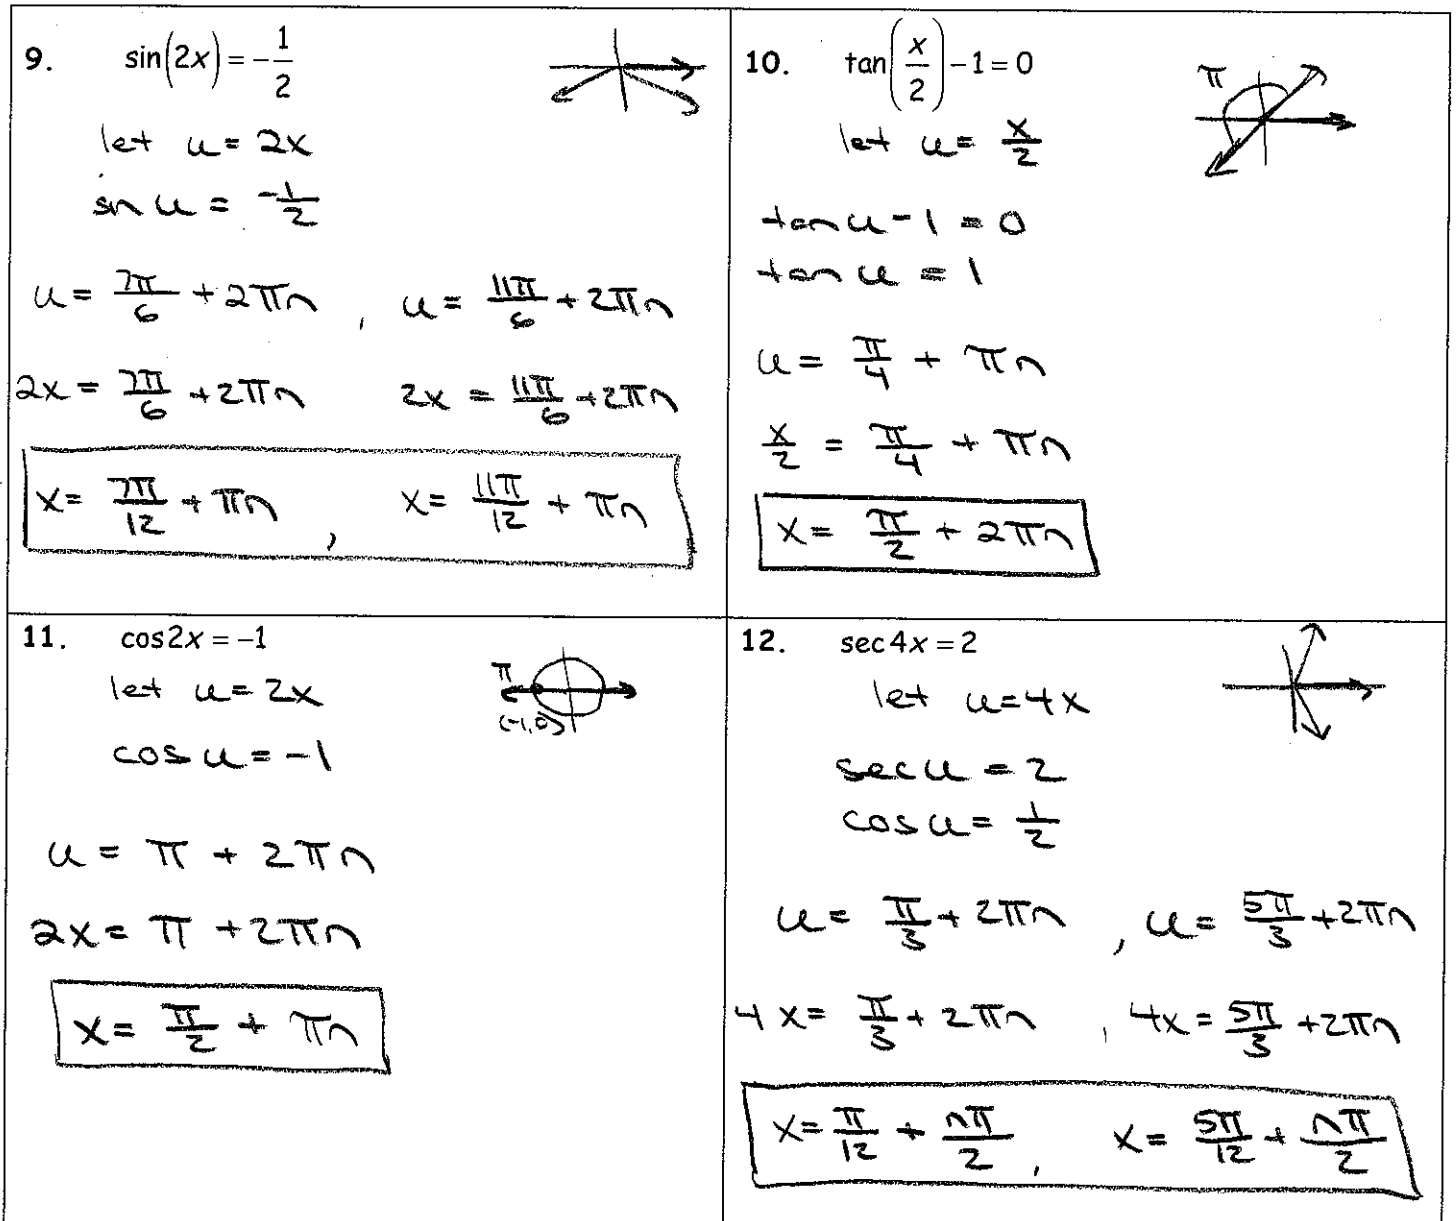 9. sin(2x) = -1/2
let u = 2x
sin u = -1/2
u = 7π/6 + 2πn , u = 11π/6 + 2πn
2x = 7π/6 + 2πn 2x = 11π/6 + 2πn
x = 7π/12 + πn , x = 11π/12 + πn
10. tan(x/2) - 1 = 0
π
let u = x/2
tan u - 1 = 0
tan u = 1
u = π/4 + πn
x/2 = π/4 + πn
x = π/2 + 2πn
11. cos2x = -1
let u = 2x
π
(-1,0)
cos u = -1
u = π + 2πn
2x = π + 2πn
x = π/2 + πn
12. sec4x = 2
let u = 4x
sec u = 2
cos u = 1/2
u = π/3 + 2πn , u = 5π/3 + 2πn
4x = π/3 + 2πn , 4x = 5π/3 + 2πn
x = π/12 + nπ/2 , x = 5π/12 + nπ/2